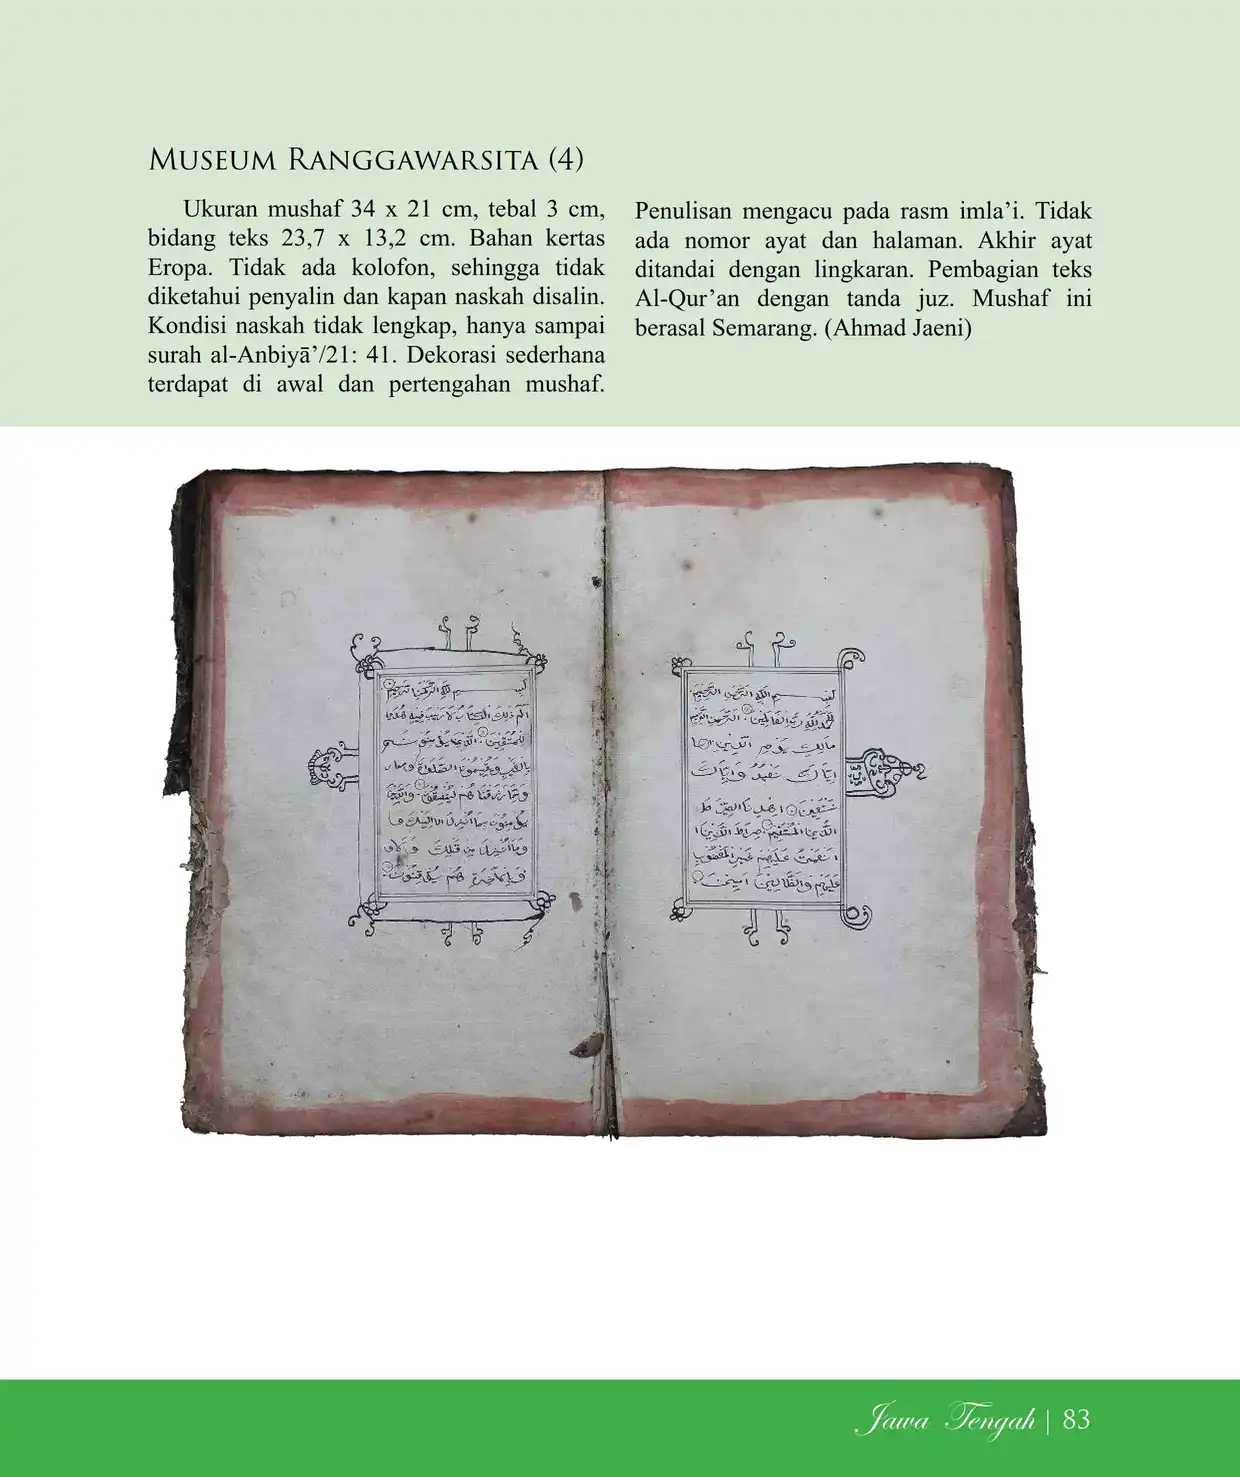 MUSEUM RANGGAWARSITA (4)
Ukuran mushaf 34 x 21 cm, tebal 3 cm,
bidang teks 23,7 x 13,2 cm. Bahan kertas
Eropa. Tidak ada kolofon, sehingga tidak
diketahui penyalin dan kapan naskah disalin.
Kondisi naskah tidak lengkap, hanya sampai
surah al-Anbiyā’/21: 41. Dekorasi sederhana
terdapat di awal dan pertengahan mushaf.
Penulisan mengacu pada rasm imla’i. Tidak
ada nomor ayat dan halaman. Akhir ayat
ditandai dengan lingkaran. Pembagian teks
Al-Qur’an dengan tanda juz. Mushaf ini
berasal Semarang. (Ahmad Jaeni)
بسم الله الرحمن الرحيم
الحمد لله رب العالمين الرحمن الرحيم
مالك يوم الدين
اياك نعبد واياك
نستعين اهدنا
المستقيم صراط الذين
انعمت عليهم غير المغضوب
عليهم امين
بسم الله الرحمن الرحيم
الم ذلك الكتاب لا ريب فيه هدى
للمتقين
بالغيب ويقيمون الصلوة
ومما رزقناهم ينفقون والذين
يؤمنون بما انزل اليك
وما انزل من قبلك
هم يوقنون
Jawa Tengah | 83